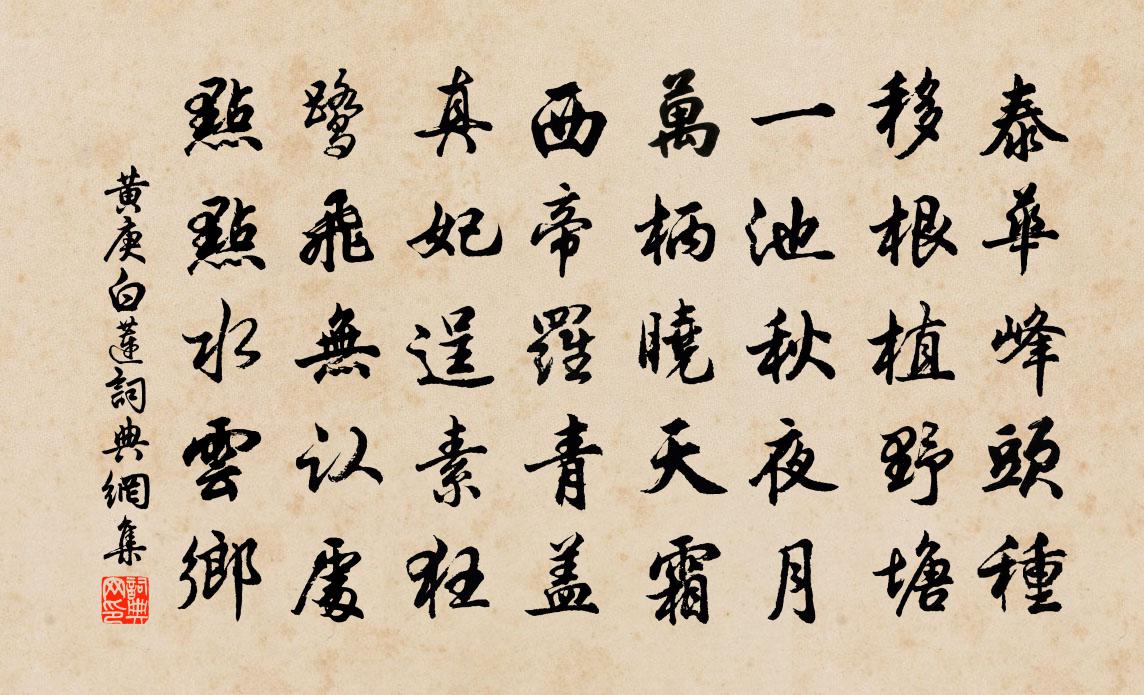 泰華峰頭種
移根植野塘
一池秋夜月
萬柄曉天霜
西帝羅青盖
真妃逞素狂
鷺飛無认處
點點水雲鄉
黄庚白蓮詞典網集
詞典网印